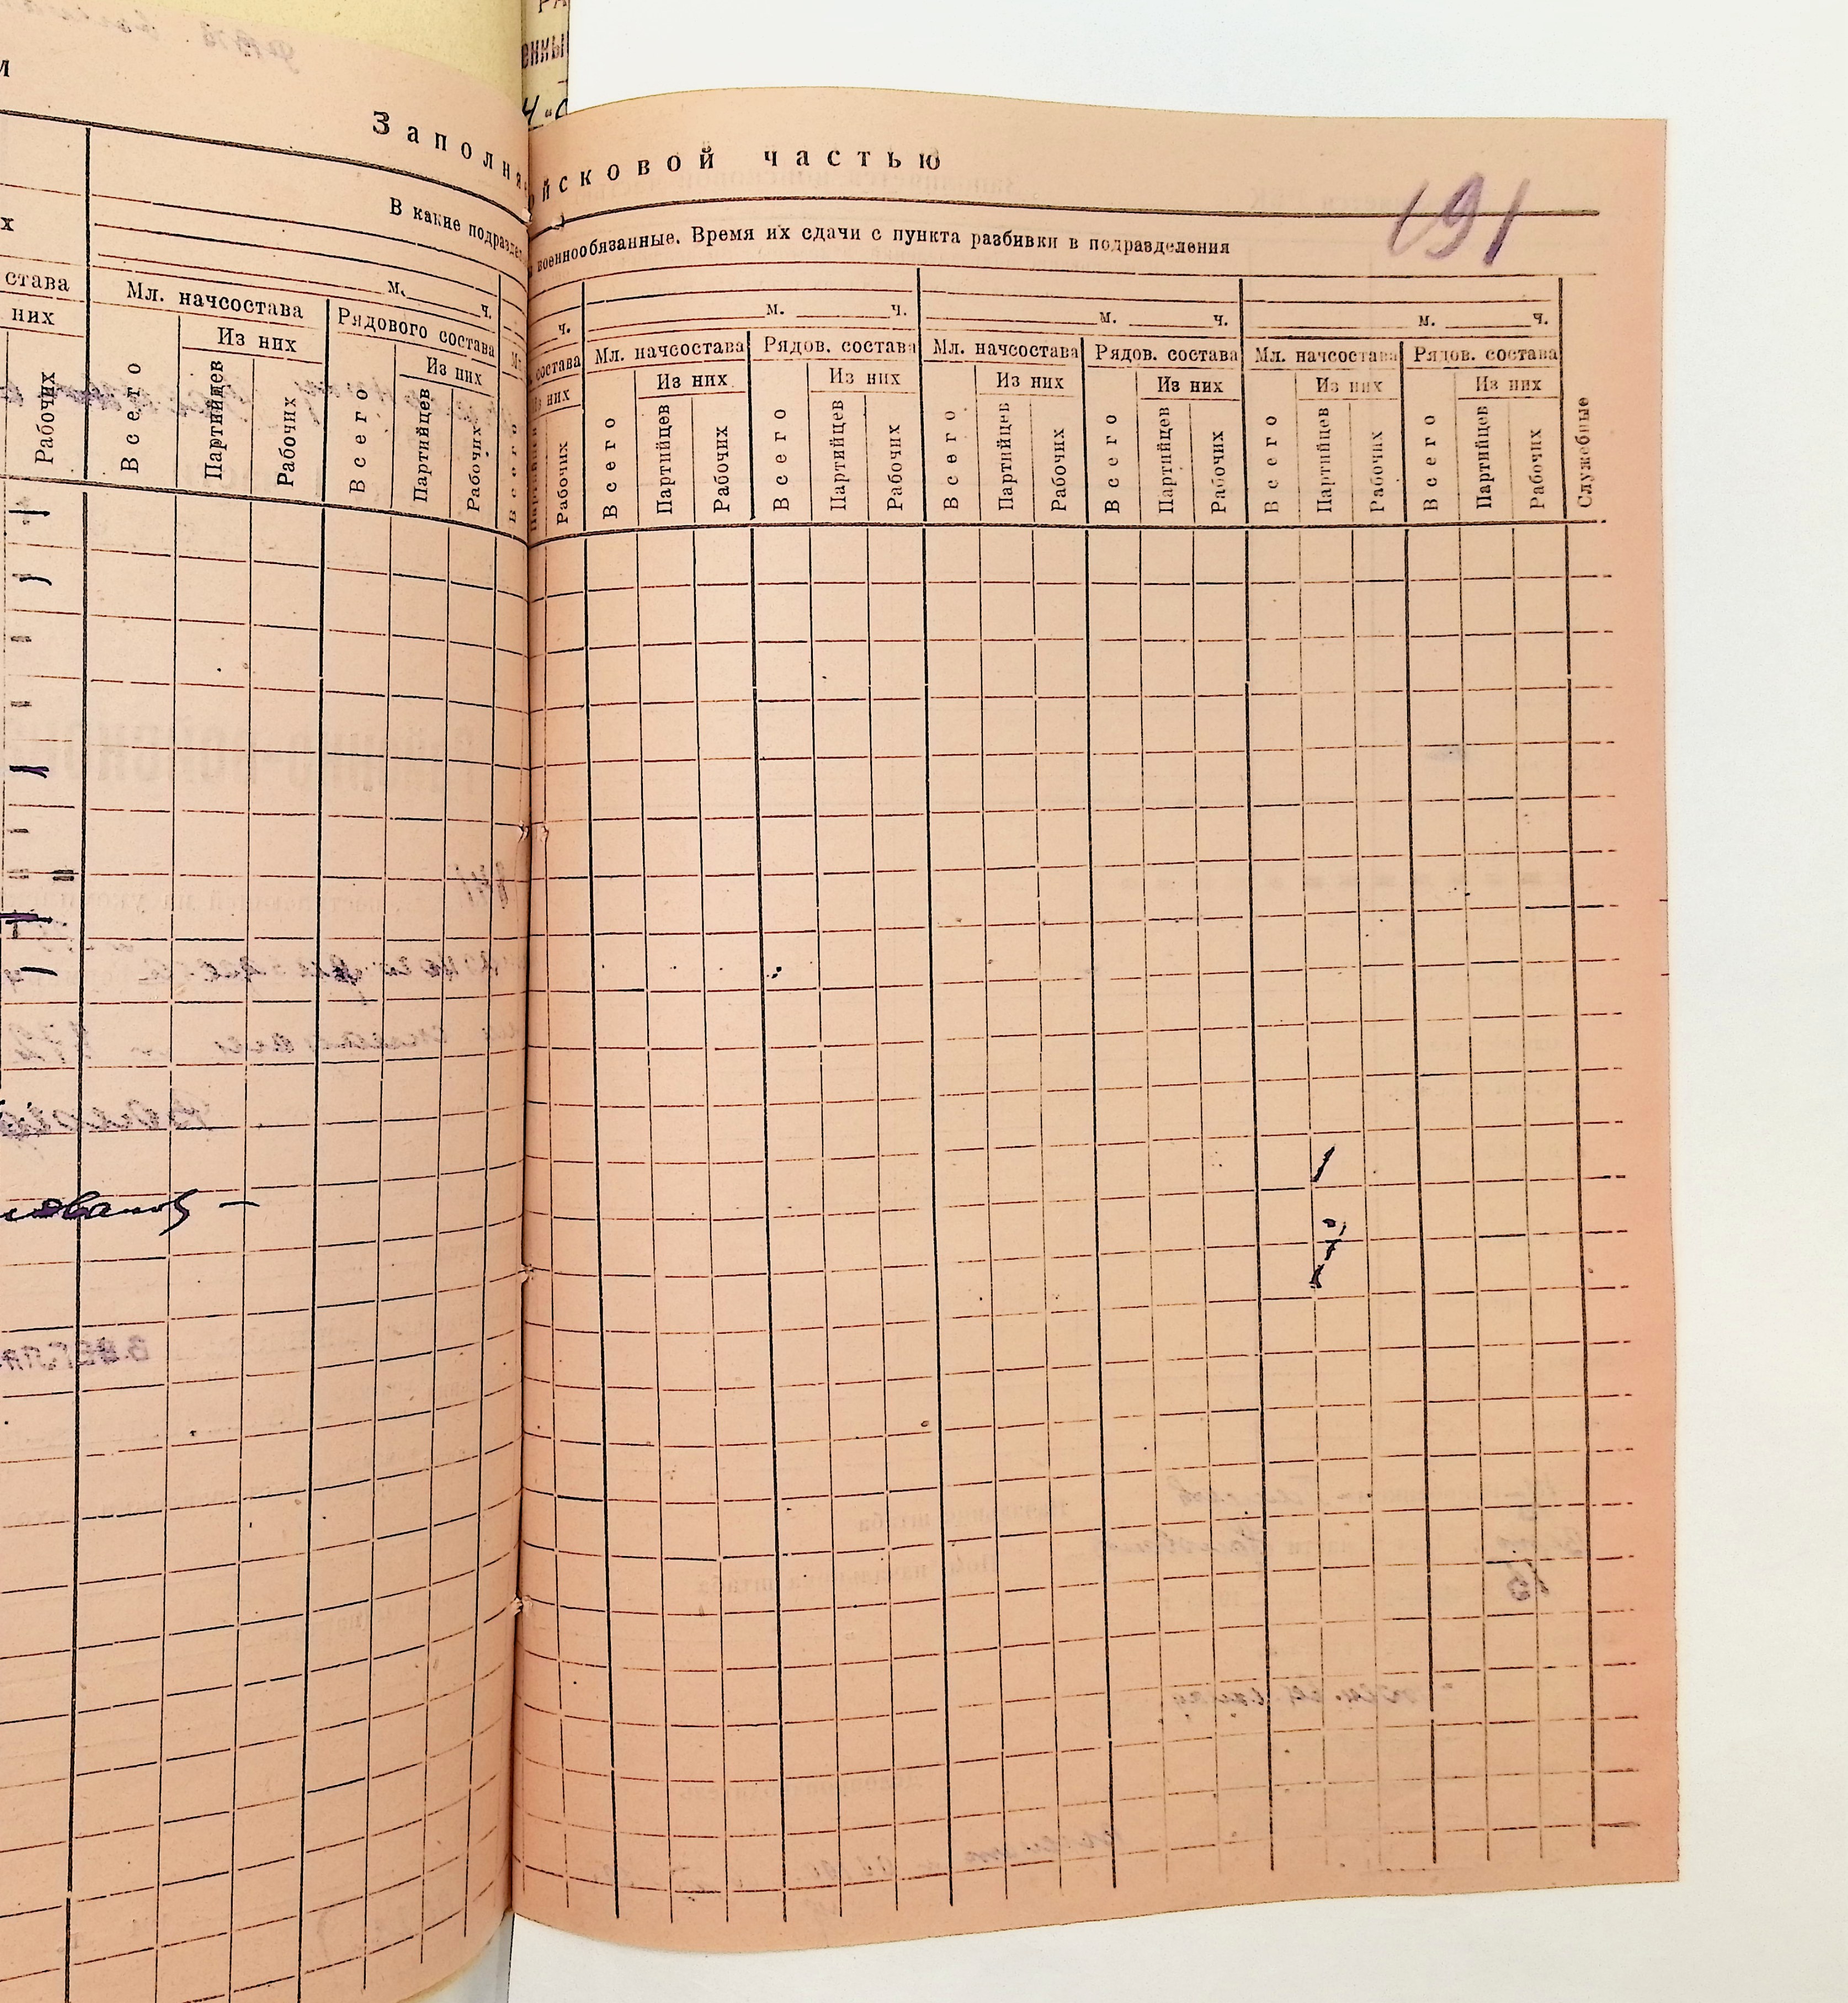 Заполня
ойсковой частью
191
В какие подразде
военнообязанные. Время их сдачи с пункта разбивки в подразделения
м. ч.
ч.
м. ч.
м. ч.
м. ч.
става
них
Рабочих
Мл. начсостава
Рядового состава
Из них
Из них
Всего
Партийцев
Рабочих
Всего
Партийцев
Рабочих
Всего
состава
Из них
Партийцев
Рабочих
Мл. начсостава
Рядов. состава
Мл. начсостава
Рядов. состава
Мл. начсостава
Рядов. состава
Из них
Из них
Из них
Из них
Из них
Из них
Всего
Партийцев
Рабочих
Всего
Партийцев
Рабочих
Всего
Партийцев
Рабочих
Всего
Партийцев
Рабочих
Всего
Партийцев
Рабочих
Всего
Партийцев
Рабочих
Служебные